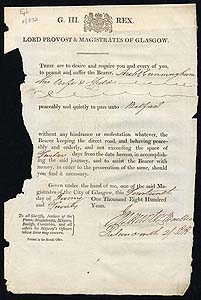 G. III. REX.
LORD PROVOST & MAGISTRATES OF GLASGOW.
THESE are to desire and require you and every of you,
to permit and suffer the Bearer, Archd Cunningham
his Wife & Child
peaceably and quietly to pass unto Belfast
without any hindrance or molestation whatever, the
Bearer keeping the direct road, and behaving peace-
ably and orderly, and not exceeding the space of
Twelve days from the date hereof, in accomplishing
the said journey, and to assist the Bearer with
money, in order to the prosecution of the same, should
you find it necessary.
Given under the hand of me, one of the said Ma-
gistrates of the City of Glasgow, this
day of One Thousand Eight Hundred
and Twenty Years.
To all Sheriffs, Justices of the
Peace, Magistrates, Ministers,
Elders, Constables, and all
others his Majesty's Officers
whom these may concern.
Printed at the Herald Office.